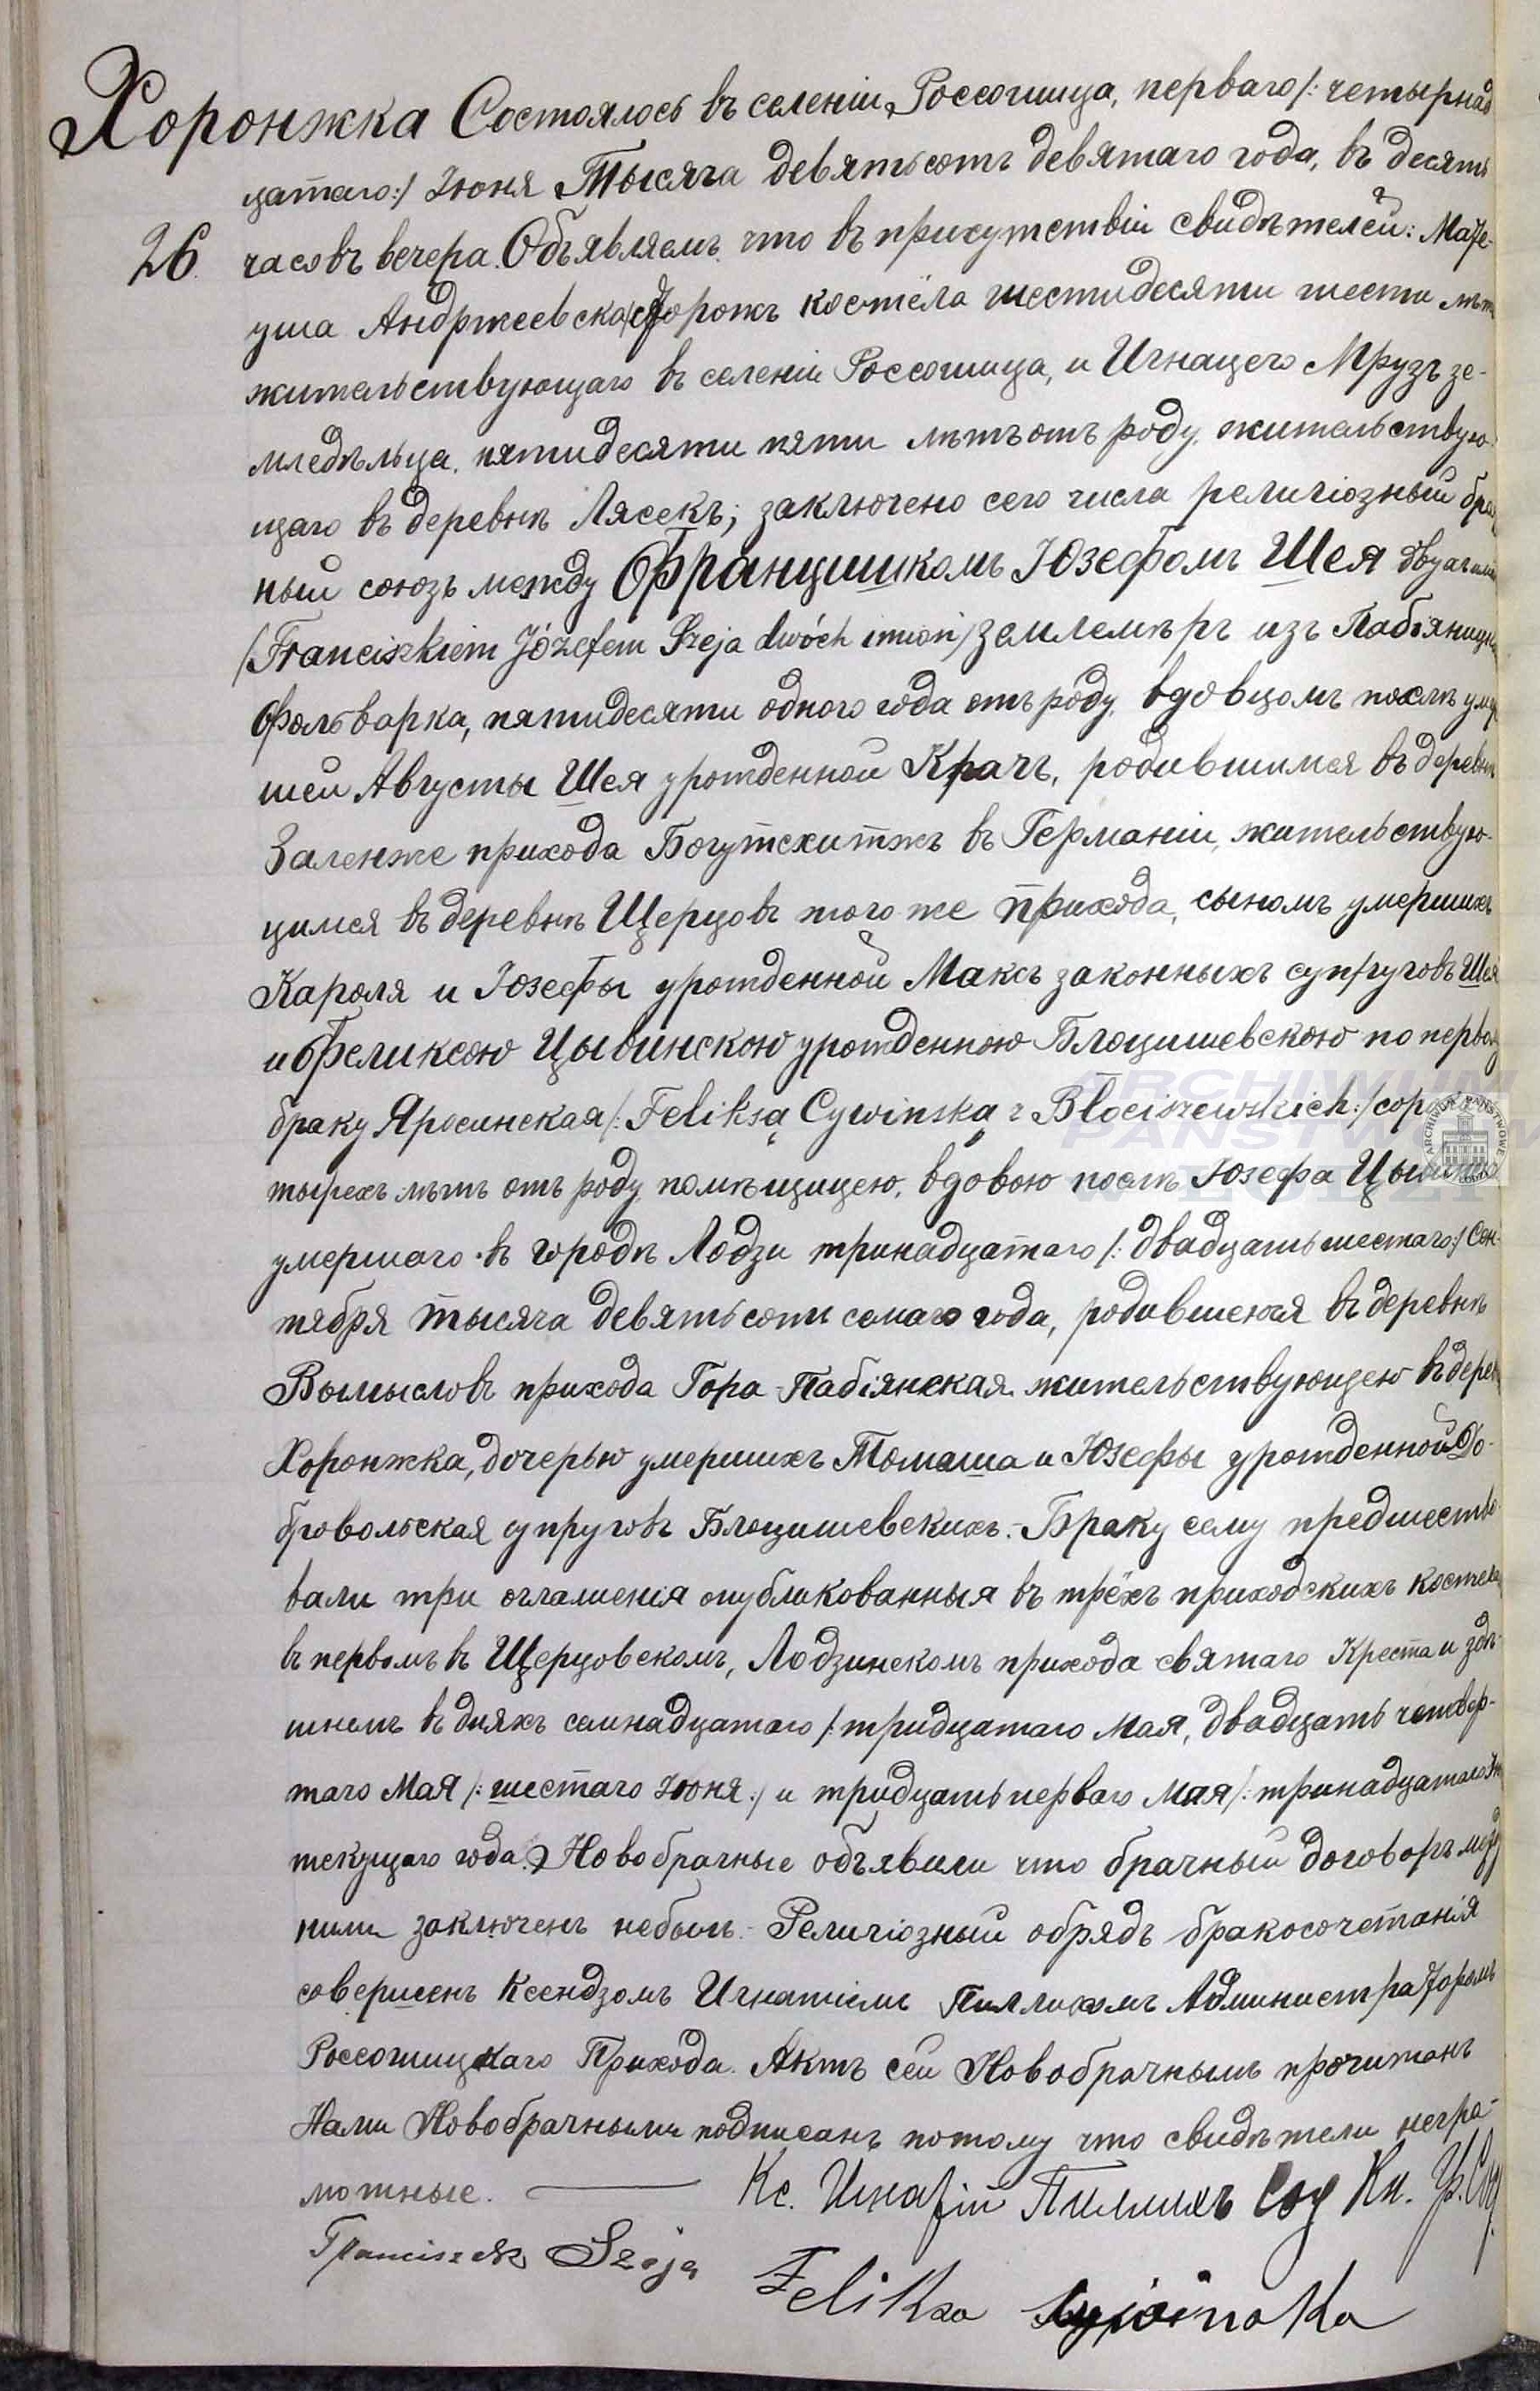 Хоронжка Состоялось въ селеніи Россошица, перваго /: четырнад
цатаго :/ Іюня Тысяча девятьсотъ девятаго года, въ десять
26. часовъ вечера. Объявляемъ что въ присутствіи свидѣтелей: Мате-
уша Андржеевска сторожъ костёла шестидесяти шести лѣтъ
жительствующаго въ селеніи Россошица, и Игнацего Мрузъ зе-
мледѣльца, пятидесяти пяти лѣтъ отъ роду, жительствую-
щаго въ деревнѣ Лясекъ; заключено сего числа религіозный брач
ный союзъ между Францишкомъ Юзефомъ Шея двуагими
/Franciszkiem Józefem Szeja dwóch imion/ землемѣръ изъ Пабіяницъ
фольварка, пятидесяти одного года отъ роду, вдовцомъ послѣ умер
шей Августы Шея урожденной Крачъ, родившимся въ деревнѣ
Заленже прихода Богутсхитжъ въ Германіи, жительствую-
щимся въ деревнѣ Щерцовъ того же прихода, сыномъ умершихъ
Кароля и Юзефы урожденной Максъ законныхъ супруговъ Шея
и Феликсою Цывинскою урожденною Блоцишевскою по первому
браку Яросинская /: Feliksą Cywinską z Błociszewskich :/ сор
тырехъ лѣтъ отъ роду помѣщицею, вдовою послѣ Юзефа
умершаго въ городѣ Лодзи тринадцатаго /: двадцать шестаго :/ Сен-
тября тысяча девятьсотъ семаго года, родившеюся въ деревнѣ
Вымысловъ прихода Гора Пабіянская жительствующею въ дерев
Хоронжка, дочерью умершихъ Томаша и Юзефы урожденной До-
бровольская супруговъ Блоцишевскихъ. - Браку сему предшество-
вали три оглашенія опубликованныя въ трёхъ приходскихъ костелахъ
въ первомъ въ Щерцовскомъ, Лодзинскомъ прихода святаго Креста и здѣ-
шнемъ въ дняхъ семнадцатаго /: тридцатаго Мая, двадцать четвер-
таго Мая /: шестаго Іюня :/ и тридцать перваго Мая /: тринадцатаго Ію
текущаго года. Новобрачные объявили что брачный договоръ между
ними заключенъ небылъ. - Религіозный обрядъ бракосочетанія
совершенъ Ксендзомъ Игнатіемъ Пилликомъ Администраторомъ
Россошицкаго Прихода. Актъ сей Новобрачнымъ прочитанъ
Нами Новобрачными подписанъ потому что свидѣтели негра-
мотные. ——— Кс. Игнатій Пилликъ Сод Кн. Гр. Сос.
Franciszek Szeja Feliksa Cywinska